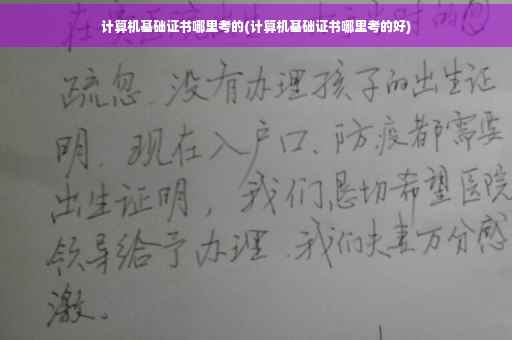 计算机基础证书哪里考的(计算机基础证书哪里考的好)
疏忽、没有办理孩子的出生证
明、现在入户口、防疫都需要
出生证明，我们恳切希望医院
领导给予办理、我们夫妻万分感
激。